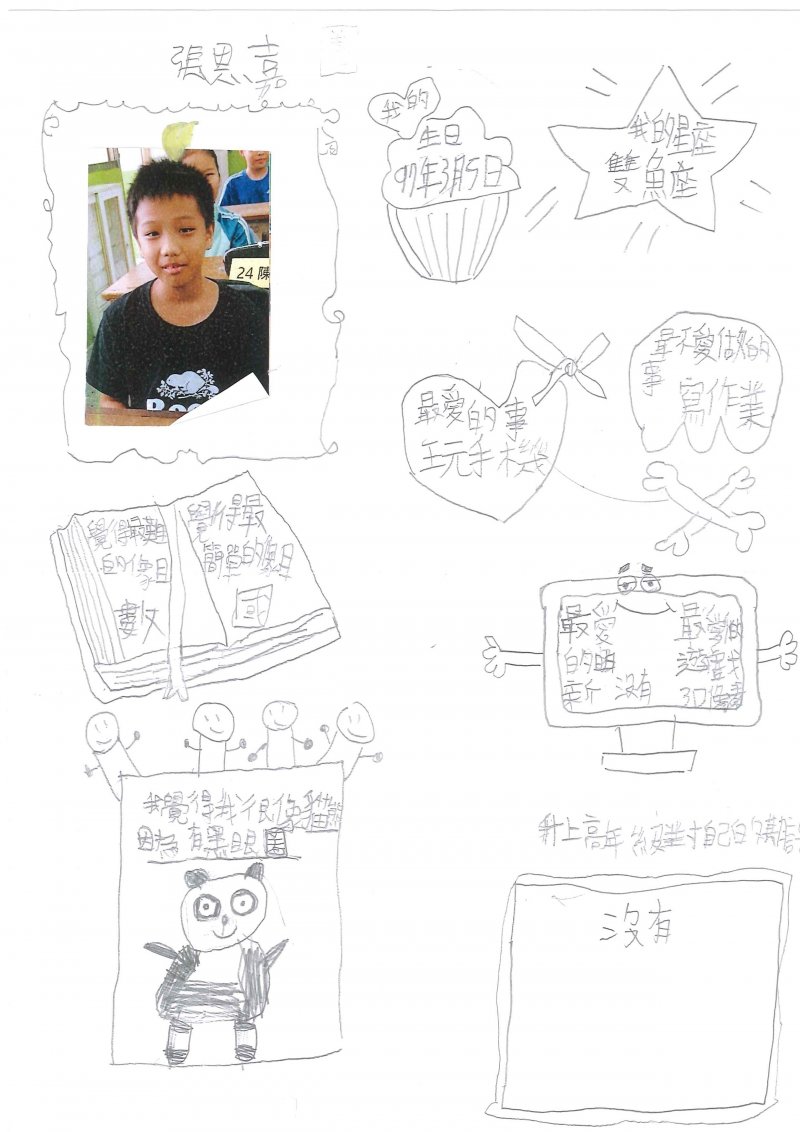 張恩嘉
24 陳
我的
生日
97年3月5日
我的星座
雙魚座
最愛的事
玩手機
最不愛做的
事
寫作業
覺得最難
的像目
數
覺得最
簡單的像目
國
最愛
的明
新 沒有
最愛的
遊戲
我覺得我很像貓熊
因為有黑眼圈
升上高年級對自己的期
沒有